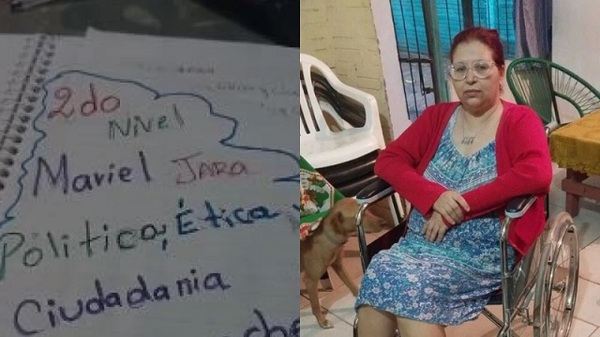 2do
Nivel
Mariel JARA
Política, Ética y
Ciudadania